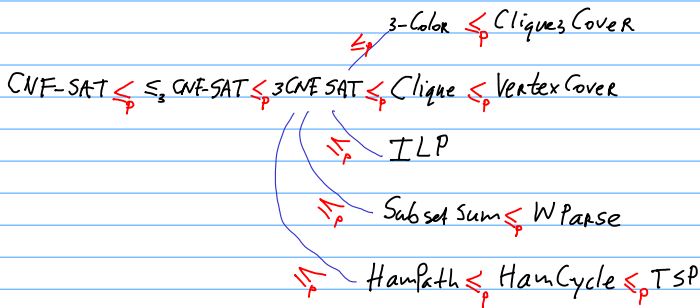 ≤p 3-Color ≤p Clique3 Cover
CNF-SAT ≤p ≤3 CNF-SAT ≤p 3CNF SAT ≤p Clique ≤p Vertex Cover
≤p ILP
≤p Subset Sum ≤p W Parse
≤p HamPath ≤p HamCycle ≤p TSP